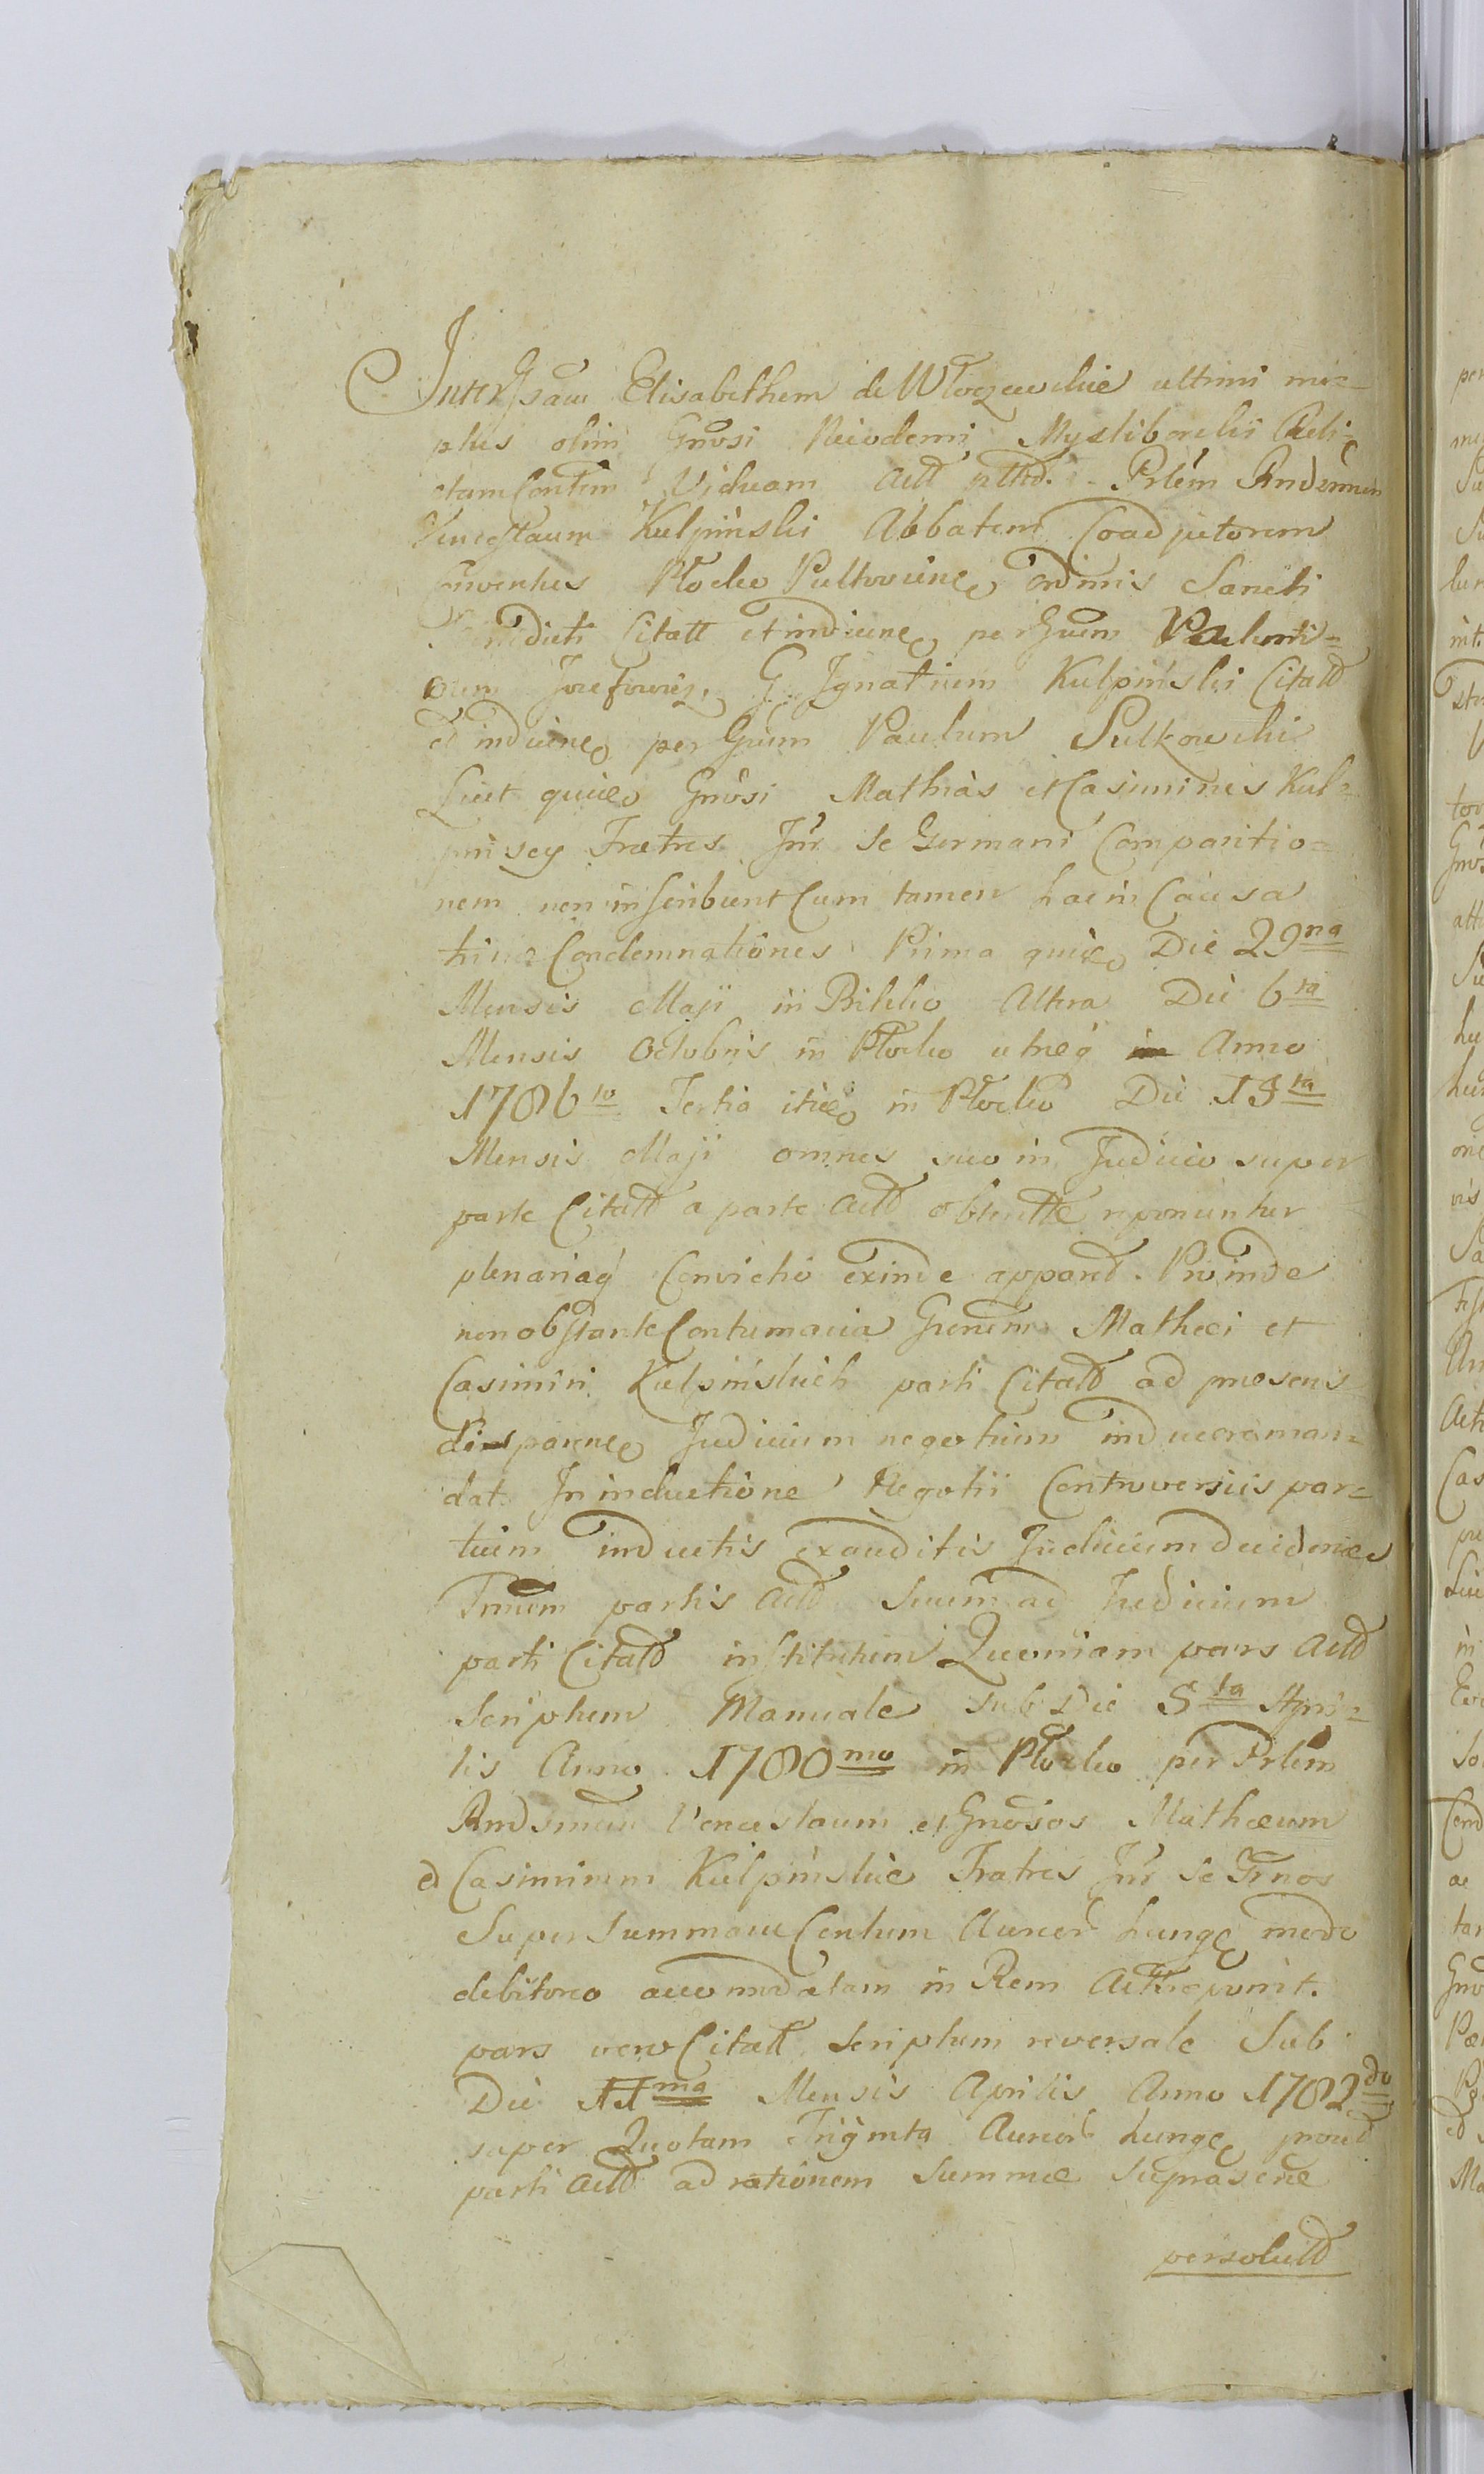 Inter Gsam Elisabetham de Włoczewskie ultimi nu-
ptus olim Gnosi Nicodemi Mysliborski Reli-
ctam Conthm Viduam Actt pttd. Prlem Rndssimum
Venceslaum Kulpinski Abbatem Coadjutorem
Conventus Płocko Pultovien ordinis Sancti
Benedicti Citatt et inducen per Gnum Valenti-
num Jozefowicz, G. Ignatium Kulpinski Citatt
et inducen per Gnum Paulum Sulkowski
Licet quidem Gnosi Mathias et Casimirus Kul-
pinscy Fratres Intr se Germani Comparitio-
nem non inscribunt Cum tamen hac in Causa
trinae Condemnationes Prima quidem Die 29na
Mensis Maji in Bielsko Altera Die 6ta
Mensis Octobris in Płocko utraeq in Anno
1786to Tertia itidem in Płocko Die 15ta
Mensis Maji omnes suo in Judicio super
parte Citatt a parte Actt obtentte reponuntur
plenariaq Convictio exinde apparet. Proinde
non obstante Contumacia Grorum Mathei et
Casimiri Kulpinskich parti Citatt ad praesens
disparen Judicium negotium inducere man-
dat. In inductione Negotii Controversiis par-
tium inductis exauditis Judicium decidendo
Trnum partis Actt Suum ad Judicium
parti Citatt institutum Quoniam pars Actt
Scriptum Manuale sub Die 5ta Apri-
lis Anno 1780mo in Płocko per Prlem
Rndsmum Venceslaum et Gnosos Mathaeum
et Casimirum Kulpinskie Fratres Intr se Grnos
Super Summam Centum Aureor hung modo
debitorio accomodatam in Rem Act reponit.
pars vero Citatt Scriptum reversale Sub
Die 11ma Mensis Aprilis Anno 1782do
super Quotam Triginta Aureor hung prout
parti Actt ad rationem Summae suprascrae
persolutt